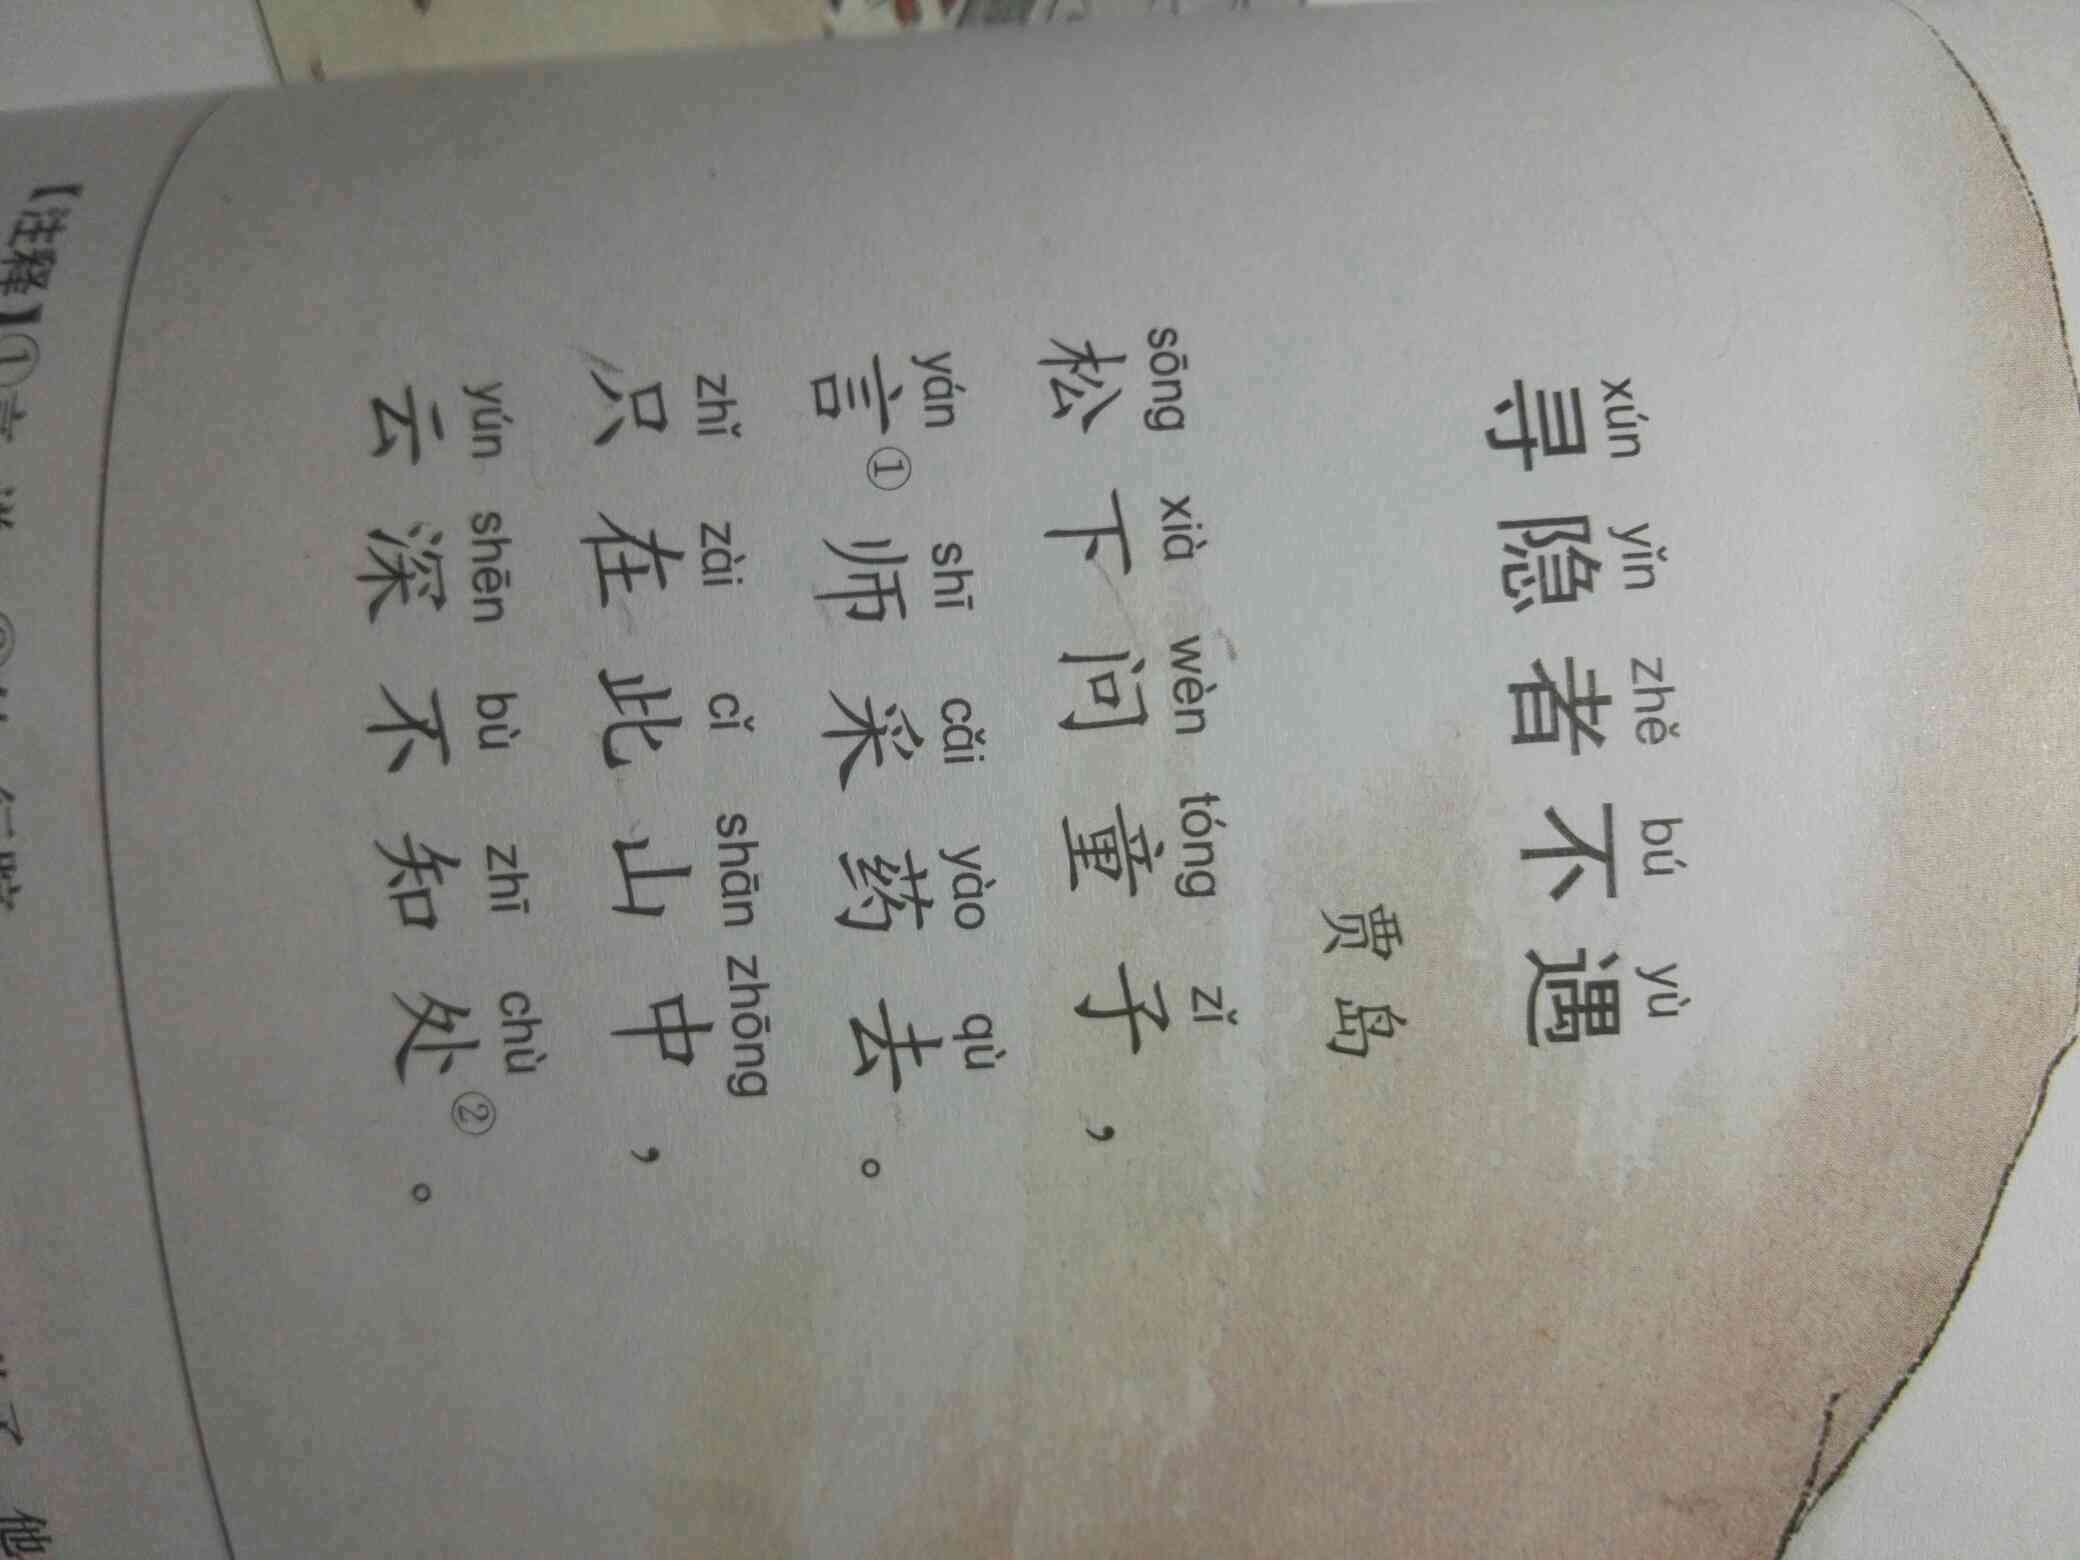 xún yǐn zhě bú yù
寻隐者不遇
贾岛
sōng xià wèn tóng zǐ
松下问童子，
yán shī cǎi yào qù
言①师采药去。
zhǐ zài cǐ shān zhōng
只在此山中，
yún shēn bù zhī chù
云深不知处②。
【注释】①言